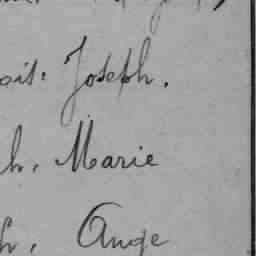 oit: Joseph.
h. Marie
h. Ange